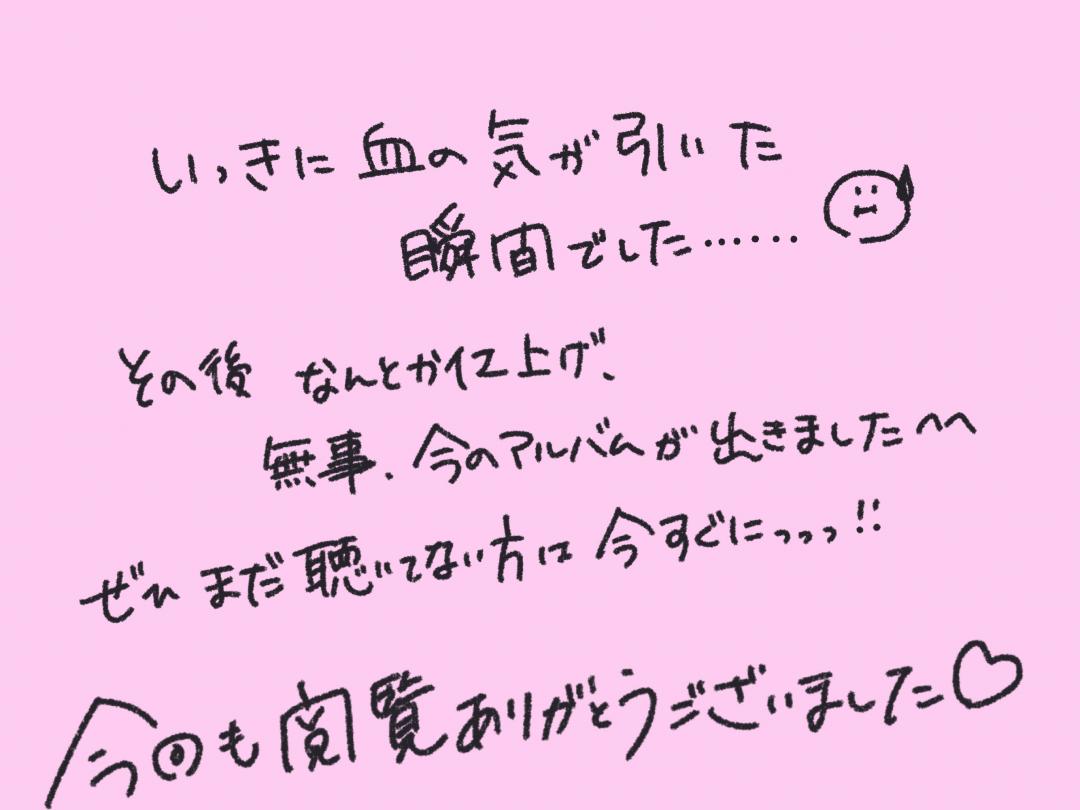 いっきに血の気が引いた
瞬間でした……
その後 なんとか仕上げ、
無事、今のアルバムが出きました^^
ぜひ まだ聴いてない方は 今すぐにっっっ!!
今回も閲覧ありがとうございました♡